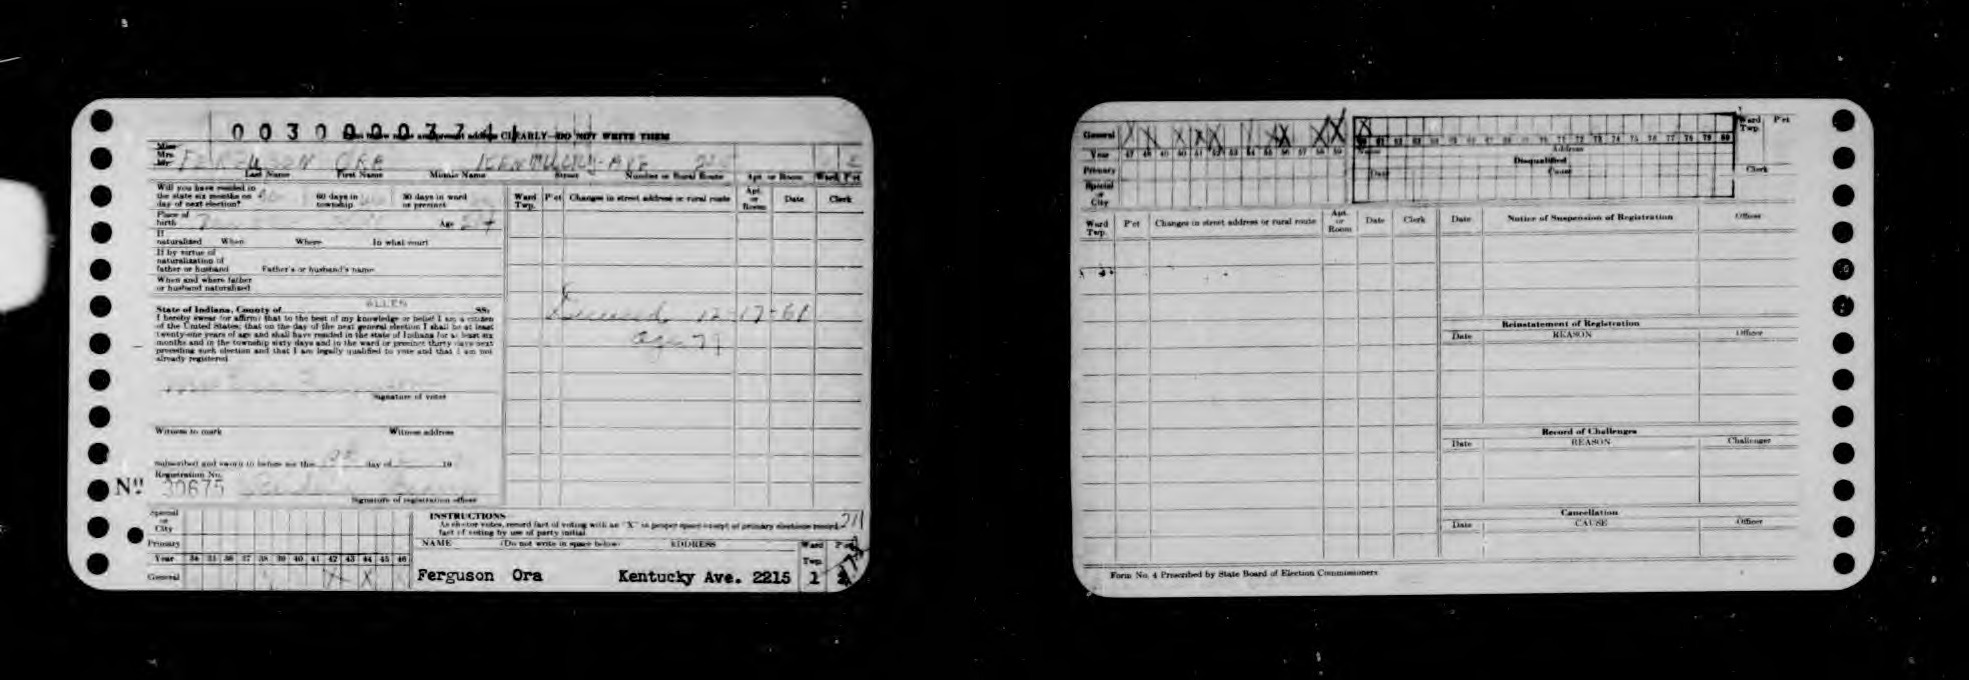 CLEARLY—DO NOT WRITE THEM
Miss
Mrs.
Mr.
FERGUSON ORA KENTUCKY AVE
Last Name First Name Middle Name Street Number or Rural Route Apt. or Room Ward P'ct
Will you have resided in
the state six months on
day of next election?
60 days in
township
30 days in ward
or precinct
Place of
birth
Age
If
naturalized When Where In what court
If by virtue of
naturalization of
father or husband Father's or husband's name
When and where father
or husband naturalized
ALLEN
State of Indiana, County of SS:
I hereby swear (or affirm) that to the best of my knowledge or belief I am a citizen
of the United States; that on the day of the next general election I shall be at least
twenty-one years of age and shall have resided in the state of Indiana for at least six
months and in the township sixty days and in the ward or precinct thirty days next
preceding such election and that I am legally qualified to vote and that I am not
already registered
Signature of voter
Witness to mark Witness address
Subscribed and sworn to before me this day of 19
Registration No.
No 30675
Signature of registration officer
Ward
Twp.
P'ct
Changes in street address or rural route
Apt.
or
Room
Date
Clerk
Deceased 12-17-61
age 79
Special
or
City
Primary
Year 34 35 36 37 38 39 40 41 42 43 44 45 46
General X X
INSTRUCTIONS
As elector votes, record fact of voting with an "X" in proper space except at primary elections record
fact of voting by use of party initial.
211
NAME (Do not write in space below) ADDRESS Ward P'ct
Twp.
Ferguson Ora Kentucky Ave. 2215 1
General
Year 47 48 49 50 51 52 53 54 55 56 57 58 59
Primary
Special
or
City
Name Address
Disqualified
Date Cause
Ward
Twp.
P'ct
Clerk
Ward
Twp.
P'ct
Changes in street address or rural route
Apt.
or
Room
Date
Clerk
Date Notice of Suspension of Registration Officer
Reinstatement of Registration
Date REASON Officer
Record of Challenges
Date REASON Challenger
Cancellation
Date CAUSE Officer
Form No. 4 Prescribed by State Board of Election Commissioners